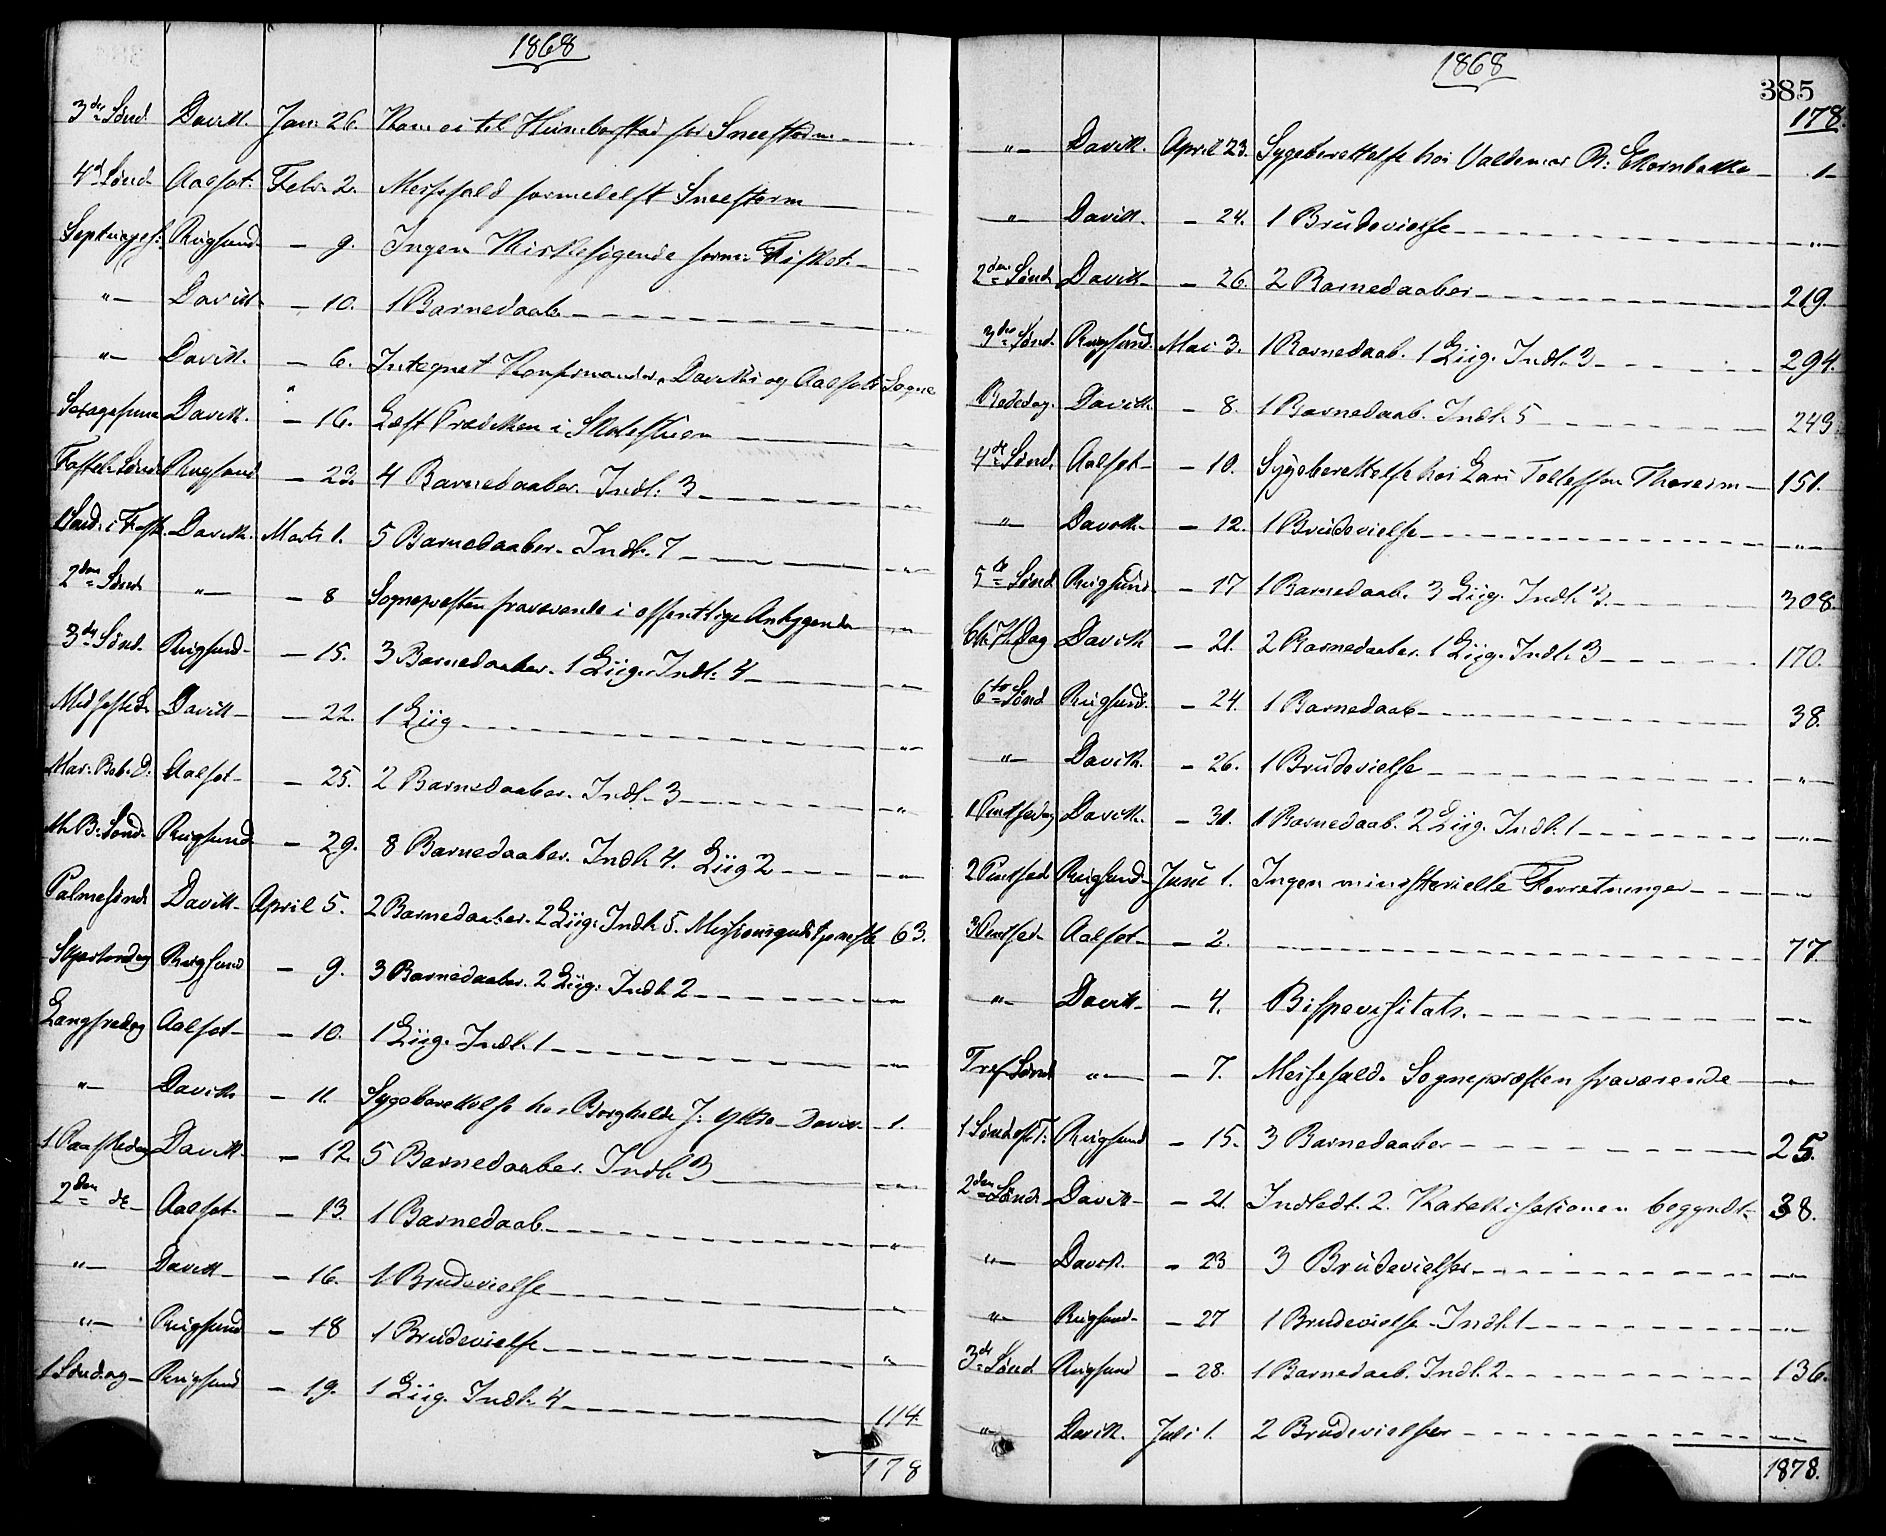 1868
3die Sønd. Davik. Jan. 26. Kom ei til for Sneestorm
4d Sønd Aalfot. Febr. 2. Messefald formedelst Sneestorm
Septuages. Rugsund. — 9. Ingen Kirkesøgende form. Fisket.
"— Davik — 10. 1 Barnedaab
"— Davik. — 6. Integnet Konfirmander, Daviks og Aalfots Sogne
Davik. — 16. Læst Prædiken i
Fastel. Sønd. Rugsund — 23. 4 Barnedaaber. Indl. 3
1 Sønd. i Fast. Davik. Marts 1. 5 Barnedaaber. Indl. 7
2den Sønd "— — 8 Sognepræsten fraværende i offentlige
3die Sønd. Rugsund — 15. 3 Barnedaaber. 1 Liig. Indl. 4
Midfaste S. Davik — 22. 1 Liig
Mar. Beb. D. Aalfot — 25. 2 Barnedaaber. Indl. 3
M. B. Sønd. Rugsund — 29. 8 Barnedaaber. Indl. 4. Liig 2
Palmesønd. Davik — April 5. 2 Barnedaaber. 2 Liig. Indl. 5. Missionsgudstjeneste 63.
Skjertorsdag Rugsund — 9. 3 Barnedaaber. 2 Liig. Indl. 2
Langfredag Aalfot — 10. 1 Liig. Indl. 1
"— Davik — 11. Sygeberettelse hos Borghilde J. Ytre-Davik 1.
1 Paaskedag Davik — 12. 5 Barnedaaber. Indl. 3
2den de Aalfot — 13. 1 Barnedaab
"— Davik — 16. 1 Brudevielse
"— Rugsund — 18 1 Brudevielse
1 Søndag Rugsund — 19. 1 Liig. Indl. 4 114.
178
1868
385
178.
"— Davik. April 23. Sygeberettelse hos Valdemar R. 1
"— Davik. — 24. 1 Brudevielse
2den Sønd Davik — 26. 2 Barnedaaber 219.
3die Sønd. Rugsund. Mai 3. 1 Barnedaab. 1 Liig. Indl. 3 294.
Bededag. Davik. — 8. 1 Barnedaab. Indl. 5 243
4de Sønd. Aalfot — 10. Sygeberettelse hos Lars Tollefsen 151.
"— Davik — 12. 1 Brudevielse
5te Sønd Rugsund. — 17 1 Barnedaab. 3 Liig. Indl. 3. 308.
Chr. H. Dag Davik — 21. 2 Barnedaaber. 1 Liig. Indl. 3 170.
6te Sønd Rugsund. — 24. 1 Barnedaab 38.
"— Davik. — 26. 1 Brudevielse
1 Pintsedag Davik. — 31. 1 Barnedaab. 2 Liig. Indl. 1
2 Pintsed. Rugsund — Juni 1. Ingen ministerielle Forretninger
3 Pintsed. Aalfot — 2. 77
"— Davik — 4. Bispevisitats.
Tref. Sønd "— — 7. Messefald. Sognepræsten fraværende
1 Sønd. eft. T. Rugsund — 15. 3 Barnedaaber 25.
2den Sønd. Davik — 21. Indledt. 2. Katekisationen begyndt 38.
"— Davik. — 23 3 Brudevielser
"— Rugsund — 27 1 Brudevielse. Indl. 1
3die Sønd Rugsund — 28. 1 Barnedaab. Indl. 2 136.
"— Davik. Juli 1. 2 Brudevielser
1878.